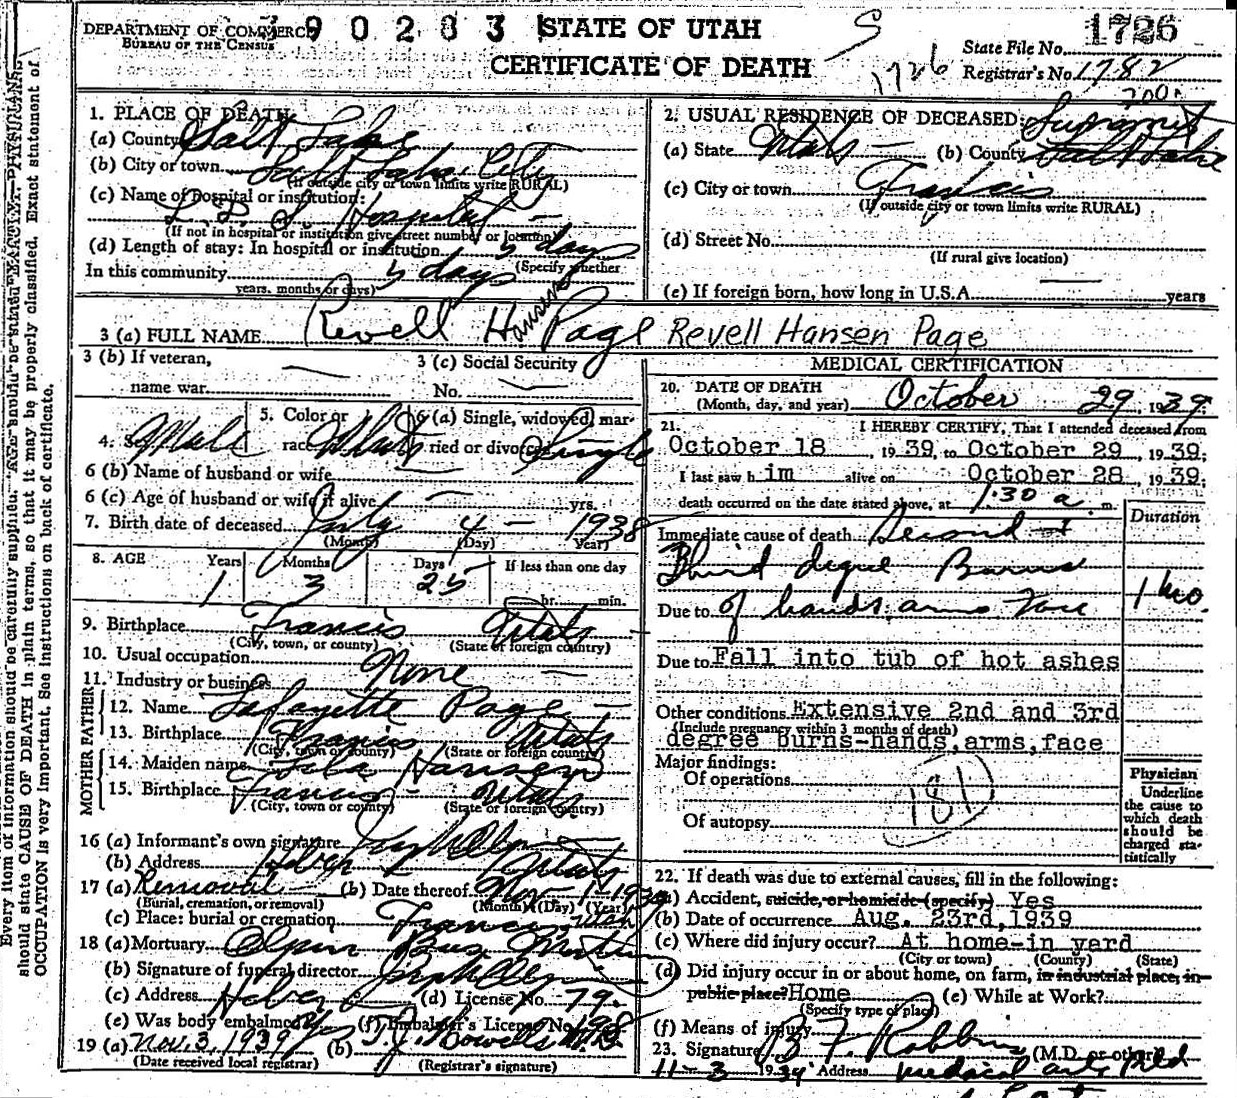 DEPARTMENT OF COMMERCE
BUREAU OF THE CENSUS
9 0 2 8 3
STATE OF UTAH
CERTIFICATE OF DEATH
S
1726
State File No. 1726
Registrar's No. 1782
1. PLACE OF DEATH
(a) County Salt Lake
(b) City or town Salt Lake City
(If outside city or town limits write RURAL)
(c) Name of hospital or institution:
L. D. S. Hospital
(If not in hospital or institution give street number or location)
(d) Length of stay: In hospital or institution 5 days
(Specify whether
In this community 5 days
years, months or days)
2. USUAL RESIDENCE OF DECEASED
Summit
(a) State Utah (b) County Salt Lake
(c) City or town Francis
(If outside city or town limits write RURAL)
(d) Street No.
(If rural give location)
(e) If foreign born, how long in U.S.A. years
3 (a) FULL NAME Revell Hansen Page Revell Hansen Page
3 (b) If veteran,
name war
3 (c) Social Security
No.
4. Sex Male
5. Color or
race White
6 (a) Single, widowed, mar-
ried or divorced Single
6 (b) Name of husband or wife
6 (c) Age of husband or wife if alive yrs.
7. Birth date of deceased July 4 - 1938
(Month) (Day) Year)
8. AGE Years Months Days If less than one day
1 3 25 hr. min.
9. Birthplace Francis Utah
(City, town, or county) (State or foreign country)
10. Usual occupation None
11. Industry or business
FATHER
12. Name Lafayette Page
13. Birthplace Francis Utah
(City, town or county) (State or foreign country)
MOTHER
14. Maiden name Hansen
15. Birthplace Francis - Utah
(City, town or county) (State or foreign country)
16 (a) Informant's own signature
(b) Address Heber Utah
17 (a) Removal (b) Date thereof Nov 1 - 1939
(Burial, cremation, or removal) (Month) (Day) (Year)
(c) Place: burial or cremation Francis Utah
18 (a) Mortuary
(b) Signature of funeral director
(c) Address Heber (d) License No. 79.
(e) Was body embalmed? (f) Embalmer's License No. 198
19 (a) Nov. 3, 1939 (b) T. J. Howells M.D.
(Date received local registrar) (Registrar's signature)
MEDICAL CERTIFICATION
20. DATE OF DEATH
(Month, day, and year) October 29, 1939.
21. I HEREBY CERTIFY, That I attended deceased from
October 18, 1939, to October 29, 1939;
I last saw him alive on October 28, 1939;
death occurred on the date stated above, at 1:30 a m.
Duration
Immediate cause of death Second +
Third degree Burns
1 mo.
Due to of hands, arms face
Due to Fall into tub of hot ashes
Other conditions Extensive 2nd and 3rd
(Include pregnancy within 3 months of death)
degree burns-hands,arms,face
Major findings:
Of operations
181
Of autopsy
Physician
Underline
the cause to
which death
should be
charged sta-
tistically
22. If death was due to external causes, fill in the following:
(a) Accident, suicide, or homicide (specify) Yes
(b) Date of occurrence Aug. 23rd,1939
(c) Where did injury occur? At home-in yard
(City or town) (County) (State)
(d) Did injury occur in or about home, on farm, in industrial place, in
public place? Home (e) While at Work?
(Specify type of place)
(f) Means of injury
23. Signature B F. Robbins (M.D. or other)
11 - 3 1939 Address medical arts Bld
Every item of information should be carefully supplied. AGE should be stated EXACTLY. PHYSICIANS
should state CAUSE OF DEATH in plain terms, so that it may be properly classified. Exact statement of
OCCUPATION is very important. See instructions on back of certificate.